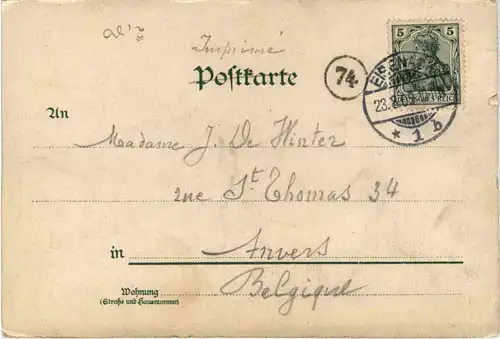 Imprimé
Postkarte
74
5 5
DEUTSCHES REICH
23.8
* 1 b
An
Madame J. De Winter
rue St Thomas 34
in
Anvers
Belgique
Wohnung
(Straße und Hausnummer)